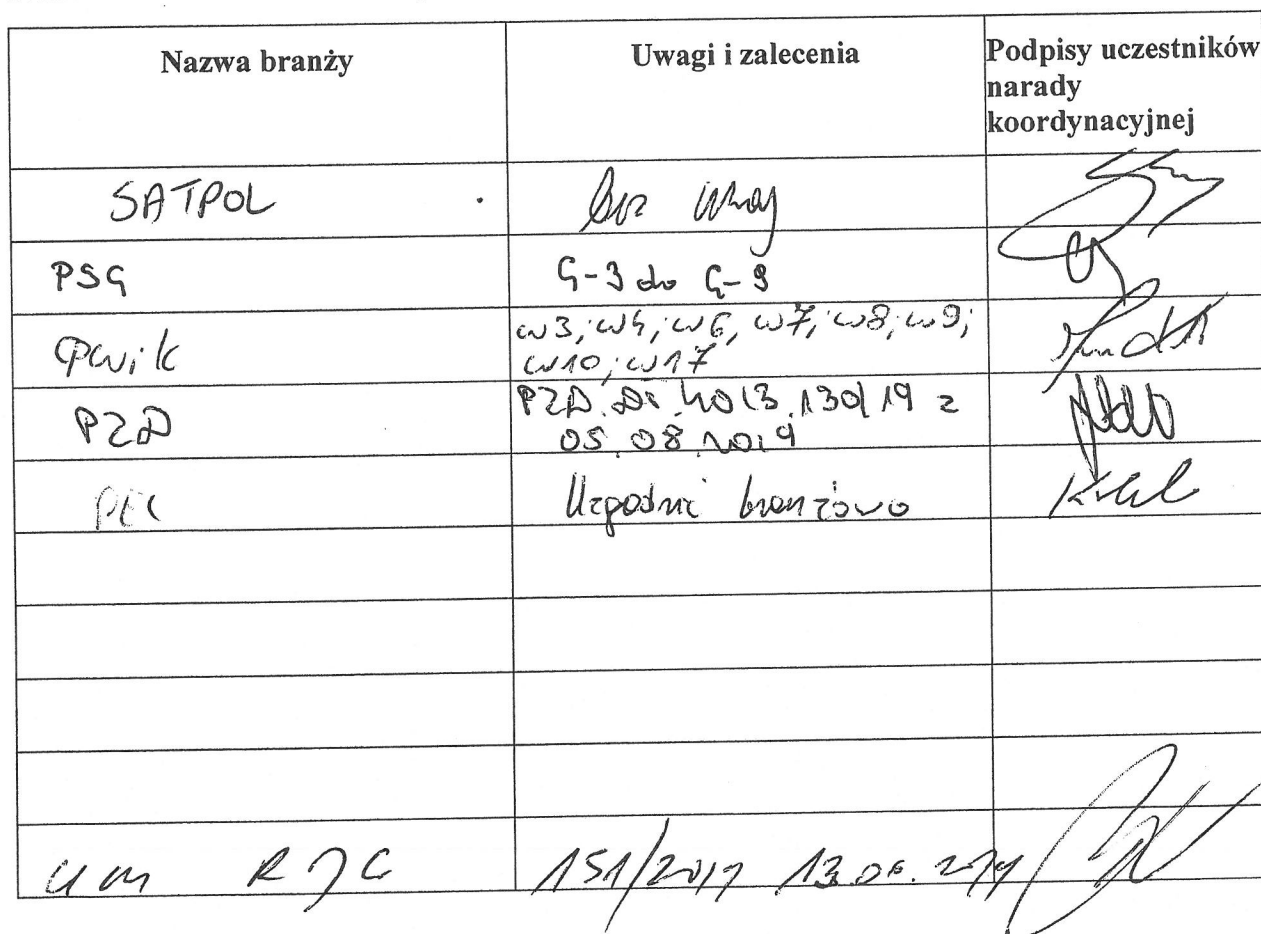 Nazwa branży
Uwagi i zalecenia
Podpisy uczestników
narady
koordynacyjnej
SATPOL
bez uwag
PSG
G-3 do G-9
PWiK
w3; w4; w6, w7; w8; w9;
w10; w17
PZD
PZD.DT.4013.130/19 z
05.08.2019
PEC
Uzgodnić branżowo
UM
151/2019 13.06.2019